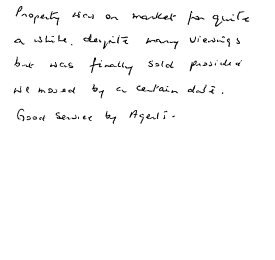 Property was on market for quite
a while, despite many viewings
but was finally sold provided
we moved by a certain date.
Good service by Agents.